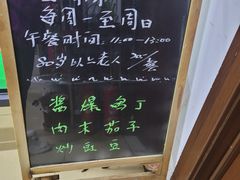 每周一至周日
午餐时间：11:00-13:00
80岁以上老人
酱爆鸡丁
肉末茄子
炒豇豆